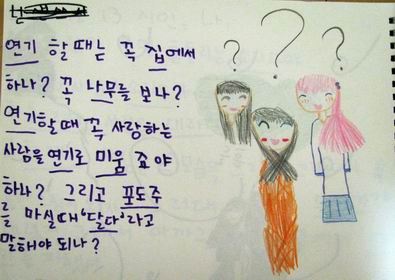 연기 할때는 꼭 집에서
하나? 꼭 나무를 보나?
연기할때 꼭 사랑하는
사람을 연기로 미움 죠야
하나? 그리고 포도주
를 마실때 '달다'라고
말해야 되나?
? ? ?